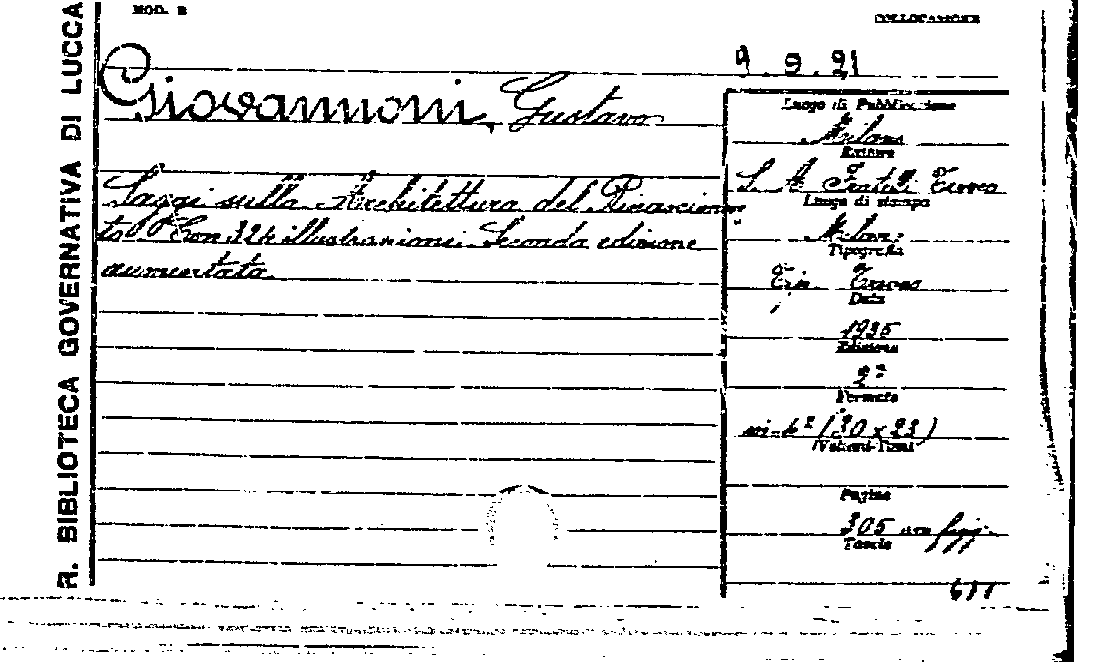 MOD. B
COLLOCAZIONE
R. BIBLIOTECA GOVERNATIVA DI LUCCA
9.9.21
Giovannoni, Gustavo
Saggi sulla Architettura del Rinascimen
to Con 324 illustrazioni. Seconda edizione
aumentata.
Luogo di Pubblicazione
Milano
Editore
S. A. Fratelli Treves
Luogo di stampa
Milano
Tipografia
Tip. Treves
Data
1935
Edizione
2ª
Formato
in-4° (30 x 23)
(Volumi-Tomi)
Pagine
305 con figg.
Tavole